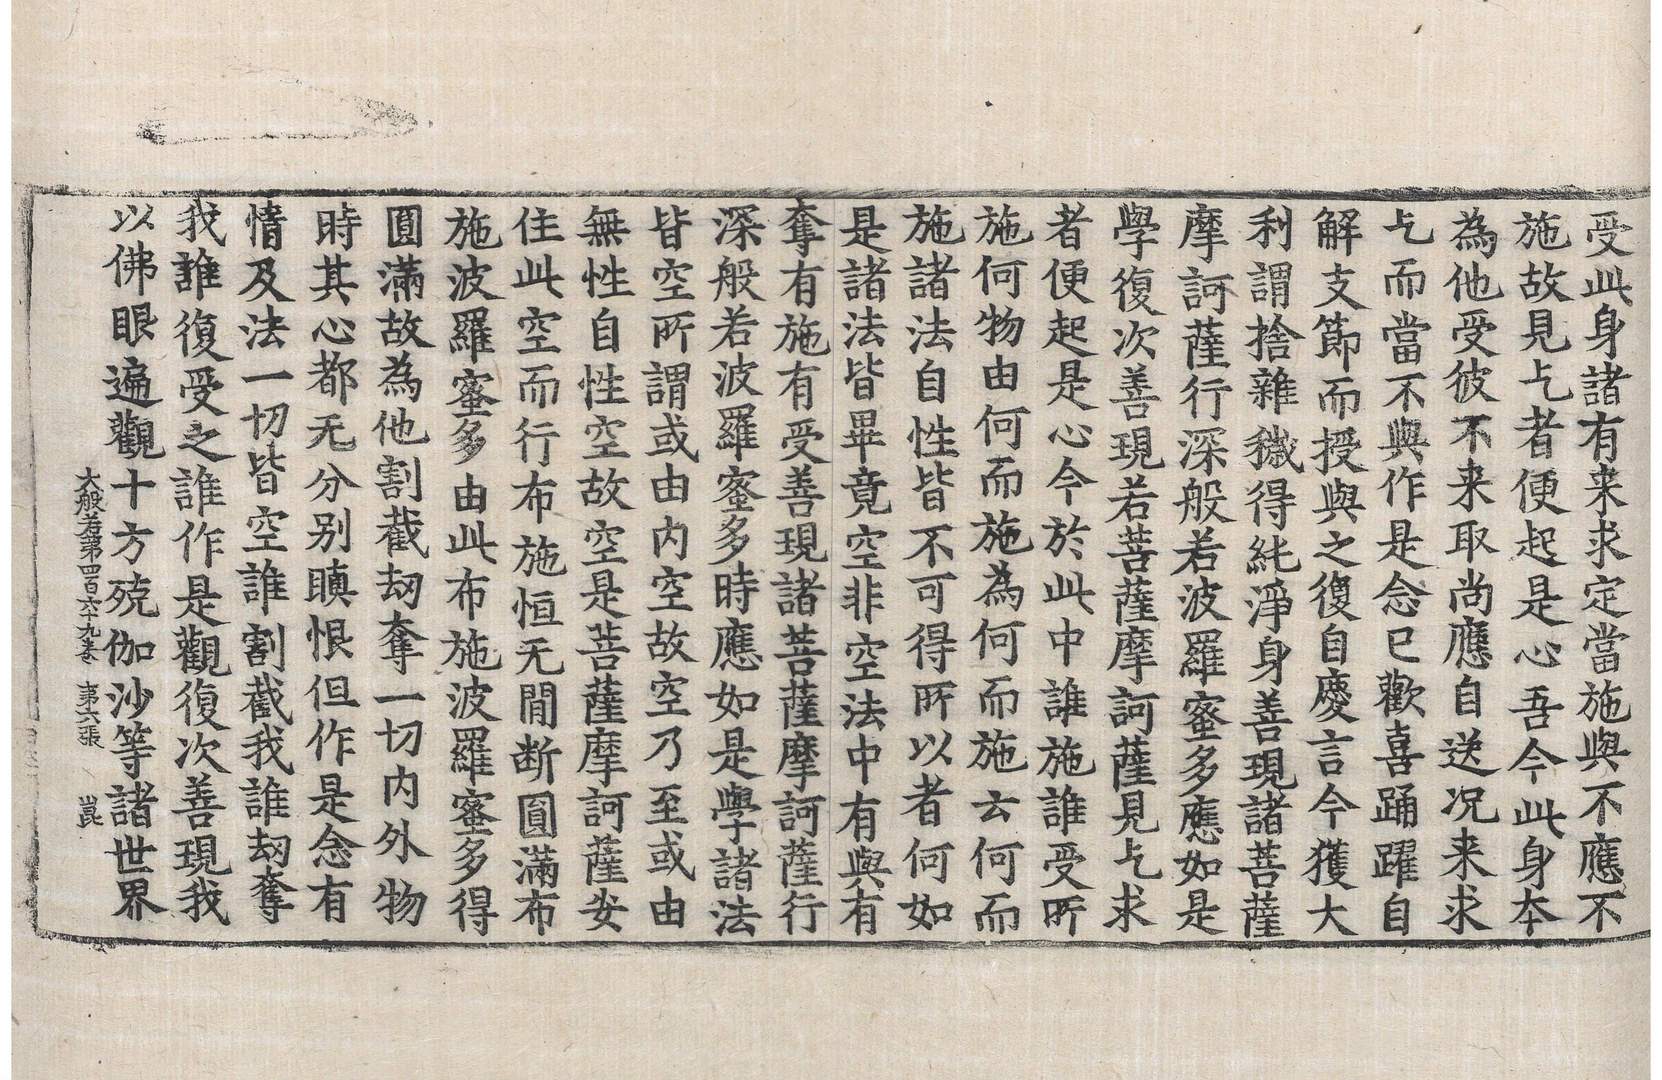 受此身諸有来求定當施與不應不
施故見乞者便起是心吾今此身本
為他受彼不来取尚應自送况来求
乞而當不與作是念已歡喜踊躍自
解支節而授與之復自慶言今獲大
利謂捨雜穢得純淨身善現諸菩薩
摩訶薩行深般若波羅蜜多應如是
學復次善現若菩薩摩訶薩見乞求
者便起是心今於此中誰施誰受所
施何物由何而施為何而施云何而
施諸法自性皆不可得所以者何如
是諸法皆畢竟空非空法中有與有
奪有施有受善現諸菩薩摩訶薩行
深般若波羅蜜多時應如是學諸法
皆空所謂或由内空故空乃至或由
無性自性空故空是菩薩摩訶薩安
住此空而行布施恒无間断圓滿布
施波羅蜜多由此布施波羅蜜多得
圓滿故為他割截刧奪一切内外物
時其心都无分别瞋恨但作是念有
情及法一切皆空誰割截我誰刧奪
我誰復受之誰作是觀復次善現我
以佛眼遍觀十方殑伽沙等諸世界
大般若第四百六十九卷 第六張 崑